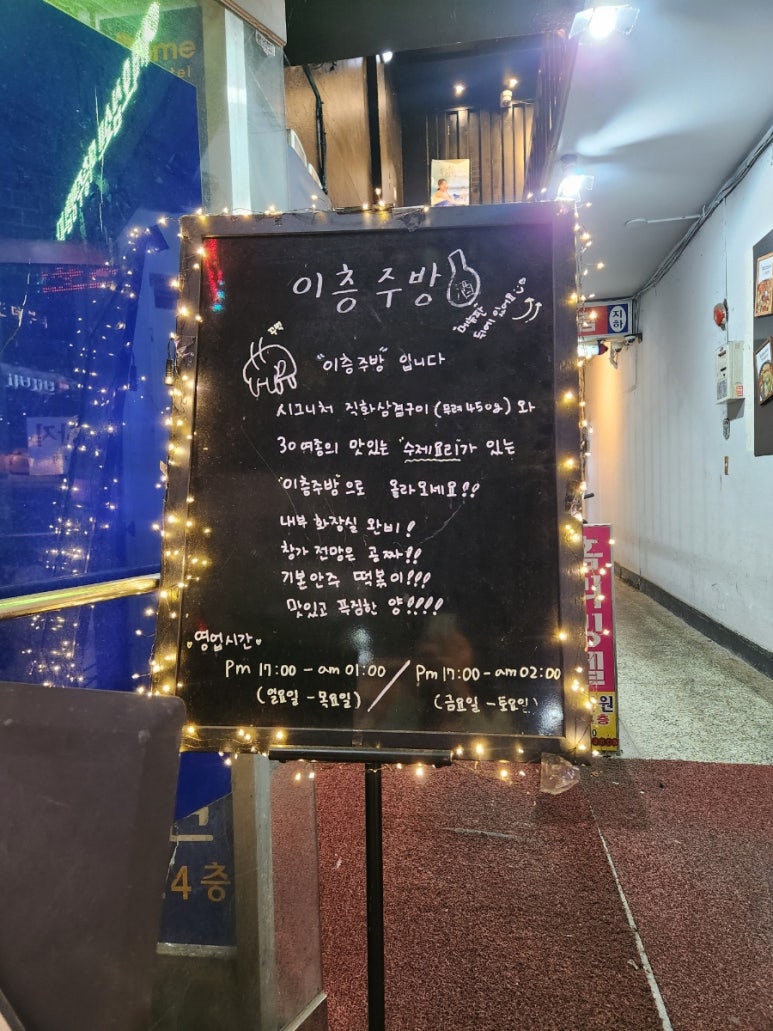 이층주방
酒
메뉴판
뒤에 있어요
"이층주방" 입니다
시그니처 직화삼겹구이 (무려 450g) 와
30여종의 맛있는 "수제요리"가 있는
"이층주방"으로 올라오세요!!
내부 화장실 완비!
창가 전망은 공짜!!
기본안주 떡볶이!!!
맛있고 푸짐한 양!!!!
영업시간
Pm 17:00 - am 01:00 / Pm 17:00 - am 02:00
(일요일 - 목요일) (금요일 - 토요일)
지하
원
층
4층